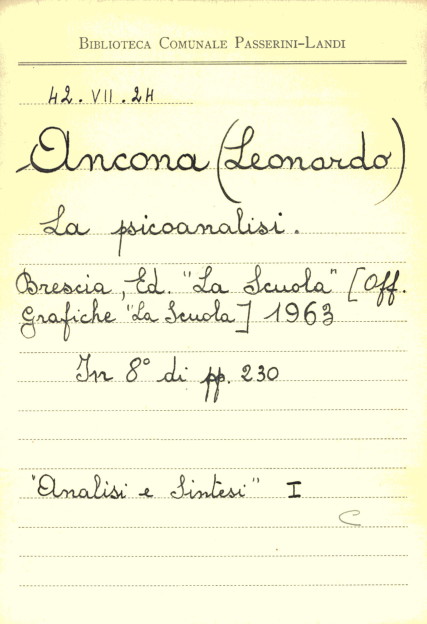 BIBLIOTECA COMUNALE PASSERINI-LANDI
42.VII.24
Ancona (Leonardo)
La psicoanalisi.
Brescia, Ed. "La Scuola" [Off.
Grafiche "La Scuola] 1963
In 8° di pp. 230
"Analisi e Sintesi" I
C